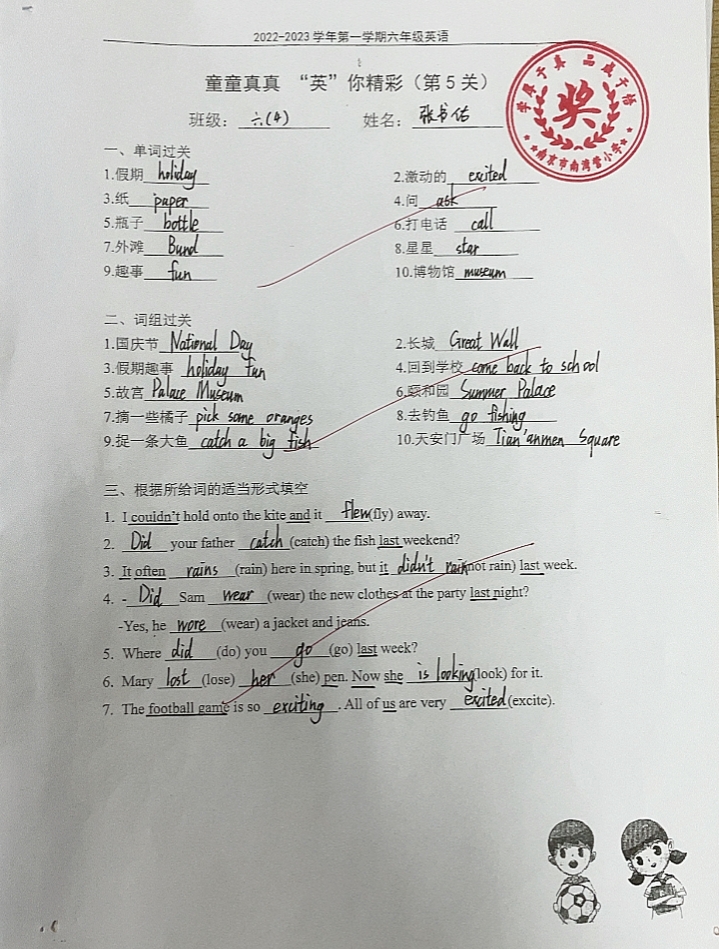 2022-2023 学年第一学期六年级英语
童童真真 “英”你精彩（第 5 关）
班级： 六(4) 姓名： 张书佑
学厚于真 品成于悟
奖
南京市南湾营小学
一、单词过关
1.假期 holiday 2.激动的 excited
3.纸 paper 4.问 ask
5.瓶子 bottle 6.打电话 call
7.外滩 Bund 8.星星 star
9.趣事 fun 10.博物馆 museum
二、词组过关
1.国庆节 National Day 2.长城 Great Wall
3.假期趣事 holiday fun 4.回到学校 come back to school
5.故宫 Palace Museum 6.颐和园 Summer Palace
7.摘一些橘子 pick some oranges 8.去钓鱼 go fishing
9.捉一条大鱼 catch a big fish 10.天安门广场 Tian'anmen Square
三、根据所给词的适当形式填空
1. I couldn't hold onto the kite and it flew (fly) away.
2. Did your father catch (catch) the fish last weekend?
3. It often rains (rain) here in spring, but it didn't rain (not rain) last week.
4. - Did Sam wear (wear) the new clothes at the party last night?
-Yes, he wore (wear) a jacket and jeans.
5. Where did (do) you go (go) last week?
6. Mary lost (lose) her (she) pen. Now she is looking (look) for it.
7. The football game is so exciting . All of us are very excited (excite).